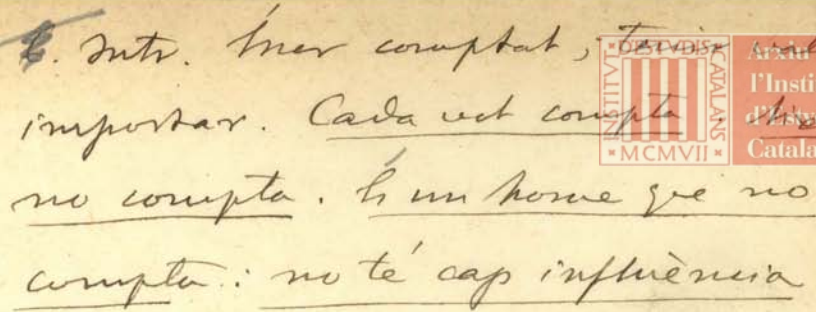 Intr. Ésser comptat, tenir val
importar. Cada vot compta. Això
no compta. És un home que no
compta: no té cap influència
INSTITVT D'ESTVDIS CATALANS
MCMVII
Arxiu
l'Insti
d'Estu
Catala